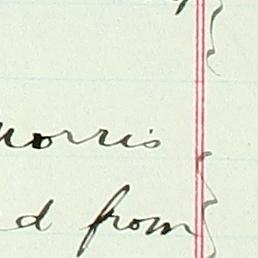 Morris
d from